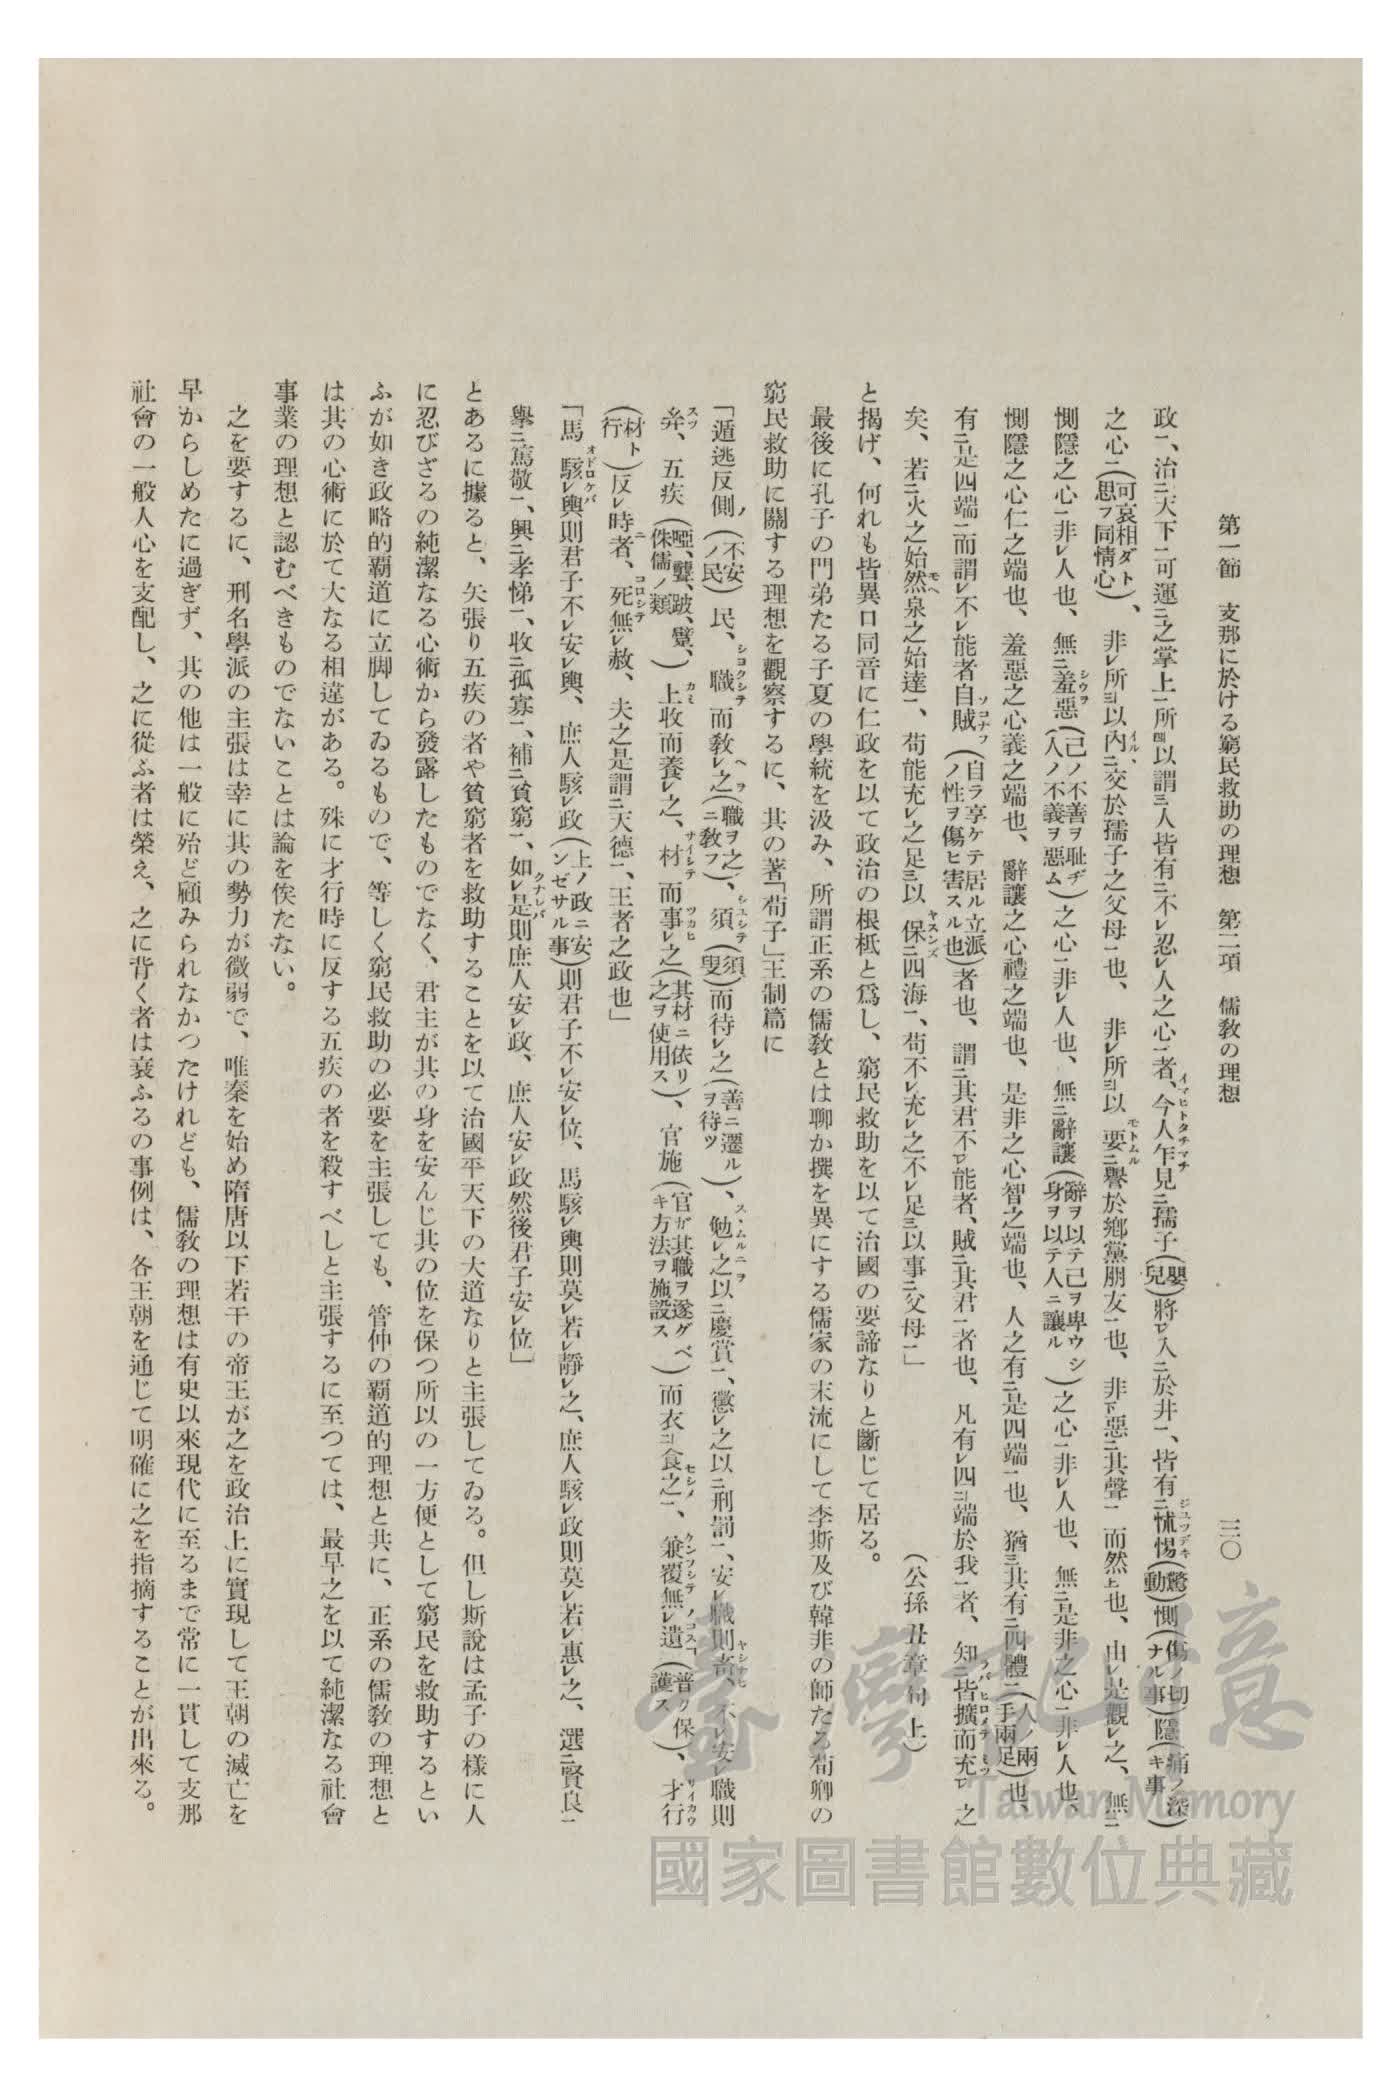 第一節　支那に於ける窮民救助の理想　第二項　儒敎の理想　三〇
政一、治二天下一可運二之掌上一所四以謂三人皆有二不レ忍レ人之心一者、今人乍見二孺子(嬰兒)將レ入二於井一、皆有二怵惕(驚動)惻(傷ノ切ナル事)隱(痛ノ深キ事)
之心二(可哀相ダト思フ同情心)、非レ所三以內二交於孺子之父母一也、非レ所三以要二譽於鄕黨朋友一也、非下惡二其聲一而然上也、由レ是觀レ之、無二
惻隱之心一非レ人也、無二羞惡(己ノ不善ヲ耻ヂ人ノ不義ヲ惡ム)之心一非レ人也、無二辭讓(辭ヲ以テ己ヲ卑ウシ身ヲ以テ人ニ讓ル)之心一非レ人也、無二是非之心一非レ人也、
惻隱之心仁之端也、羞惡之心義之端也、辭讓之心禮之端也、是非之心智之端也、人之有二是四端一也、猶三其有二四體二(人ノ兩手兩足)也、
有二是四端一而謂レ不レ能者自賊(自ラ享ケテ居ル立派ノ性ヲ傷ヒ害スル也)者也、謂二其君不レ能者、賊二其君一者也、凡有レ四二端於我一者、知二皆擴而充レ之
矣、若二火之始然泉之始達一、苟能充レ之足三以保二四海一、苟不レ充レ之不レ足三以事二父母一」　(公孫丑章句上)
と揭げ、何れも皆異口同音に仁政を以て政治の根柢と爲し、窮民救助を以て治國の要諦なりと斷じて居る。
最後に孔子の門弟たる子夏の學統を汲み、所謂正系の儒敎とは聊か撰を異にする儒家の末流にして李斯及び韓非の師たる荀卿の
窮民救助に關する理想を觀察するに、其の著「荀子」王制篇に
「遁逃反側ノ(不安ノ民)民、職而敎レ之(職ヲ之ニ敎フ)、須(須叟)而待レ之(善ニ遷ルヲ待ツ)、勉レ之以二慶賞一、懲レ之以二刑罰一、安レ職則畜、不レ安レ職則
弃、五疾(啞、聾、跛、躄、侏儒ノ類)上收而養レ之、材而事レ之(其材ニ依リ之ヲ使用ス)、官施(官ガ其職ヲ遂グベキ方法ヲ施設ス)而衣二食之一、兼覆無レ遺(普ク保護ス)、才行
(材ト行)反レ時者、死無レ赦、夫之是謂二天德一、王者之政也」
「馬駭レ輿則君子不レ安レ輿、庶人駭レ政(上ノ政ニ安ンゼサル事)則君子不レ安レ位、馬駭レ輿則莫レ若レ靜レ之、庶人駭レ政則莫レ若レ惠レ之、選二賢良一
擧二篤敬一、興二孝悌一、收二孤寡一、補二貧窮一、如レ是則庶人安レ政、庶人安レ政然後君子安レ位」
とあるに據ると、矢張り五疾の者や貧窮者を救助することを以て治國平天下の大道なりと主張してゐる。但し斯說は孟子の樣に人
に忍びざるの純潔なる心術から發露したものでなく、君主が其の身を安んじ其の位を保つ所以の一方便として窮民を救助するとい
ふが如き政略的覇道に立脚してゐるもので、等しく窮民救助の必要を主張しても、管仲の覇道的理想と共に、正系の儒敎の理想と
は其の心術に於て大なる相違がある。殊に才行時に反する五疾の者を殺すべしと主張するに至つては、最早之を以て純潔なる社會
事業の理想と認むべきものでないことは論を俟たない。
之を要するに、刑名學派の主張は幸に其の勢力が微弱で、唯秦を始め隋唐以下若干の帝王が之を政治上に實現して王朝の滅亡を
早からしめたに過ぎず、其の他は一般に殆ど顧みられなかつたけれども、儒敎の理想は有史以來現代に至るまで常に一貫して支那
社會の一般人心を支配し、之に從ふ者は榮え、之に背く者は衰ふるの事例は、各王朝を通じて明確に之を指摘することが出來る。
臺灣記憶
Taiwan Memory
國家圖書館數位典藏